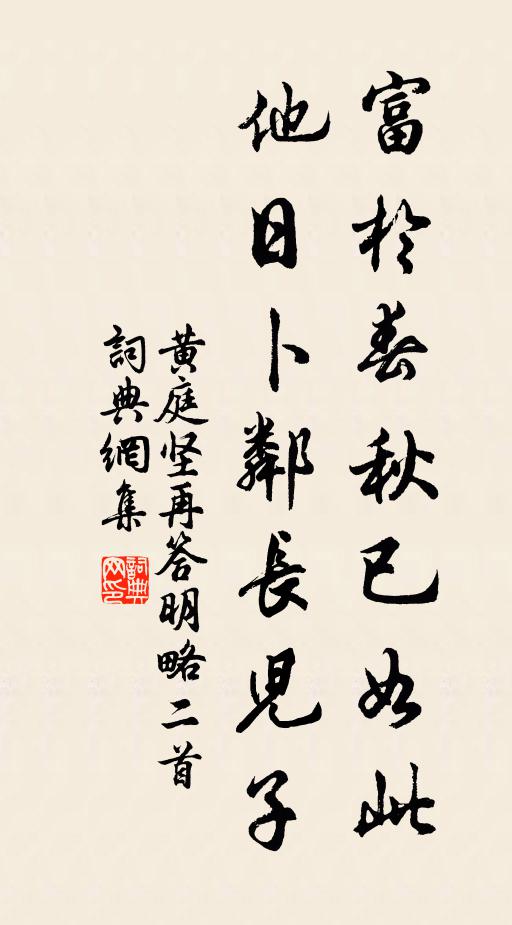 富於春秋已如此
他日卜鄰長兒子
黄庭坚再答明略二首
詞典網集
詞典网印